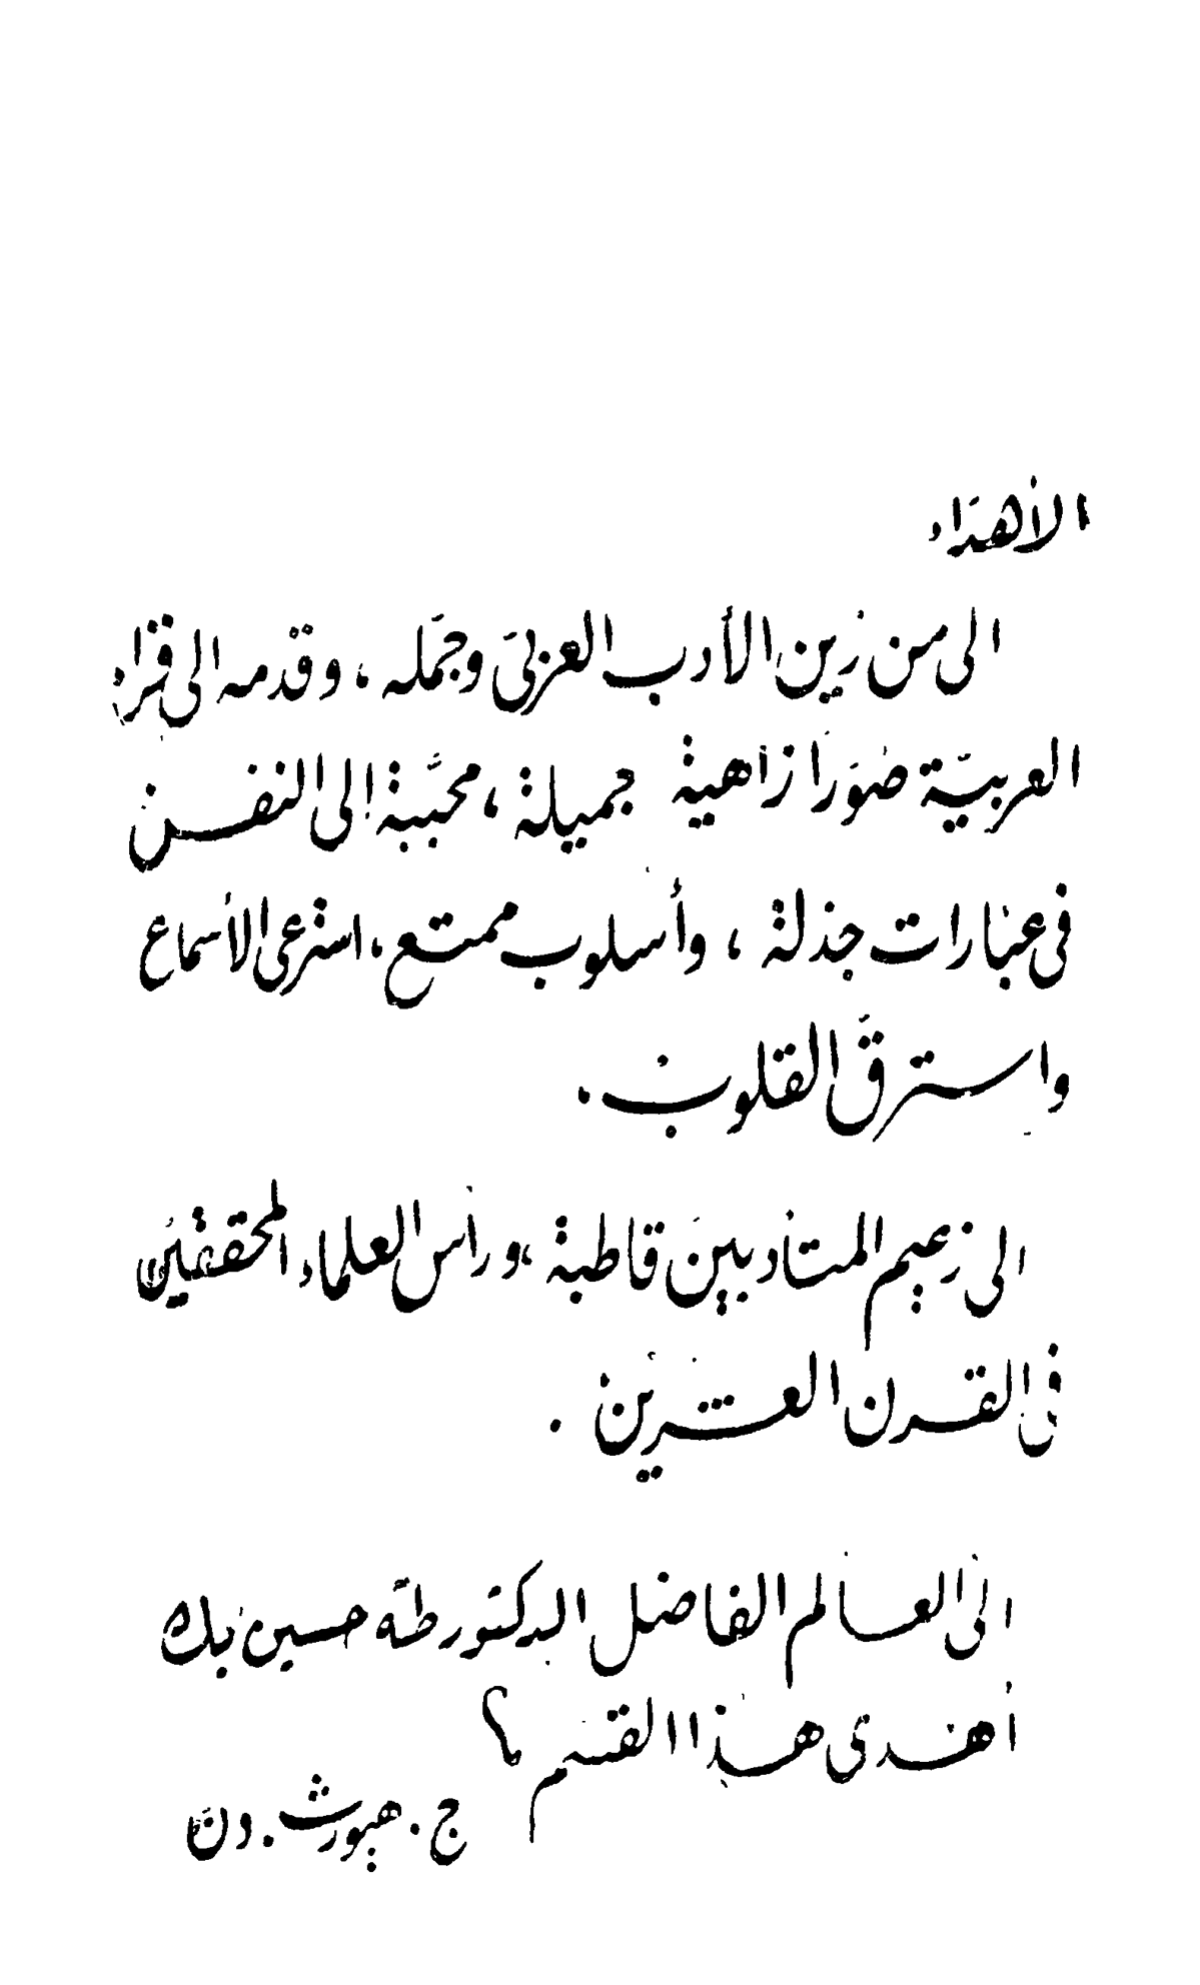 الأهداء
الى من زين الأدب العربى وجمّله ، وقدمه الى قراء
العربيّة صوَرا زاهية جميلة ، محبّبة إلى النفس
فى عبارات جذلة ، وأسلوب ممتع ، استرعى الأسماع
واسترقّ القلوب .
الى زعيم المتأدبين قاطبة ، ورأس العلماء المحققين
فى القرن العشرين .
الى العالم الفاضل الدكتور طه حسين بك
أهدى هذا القسم ؟
ج . هيورث . دن